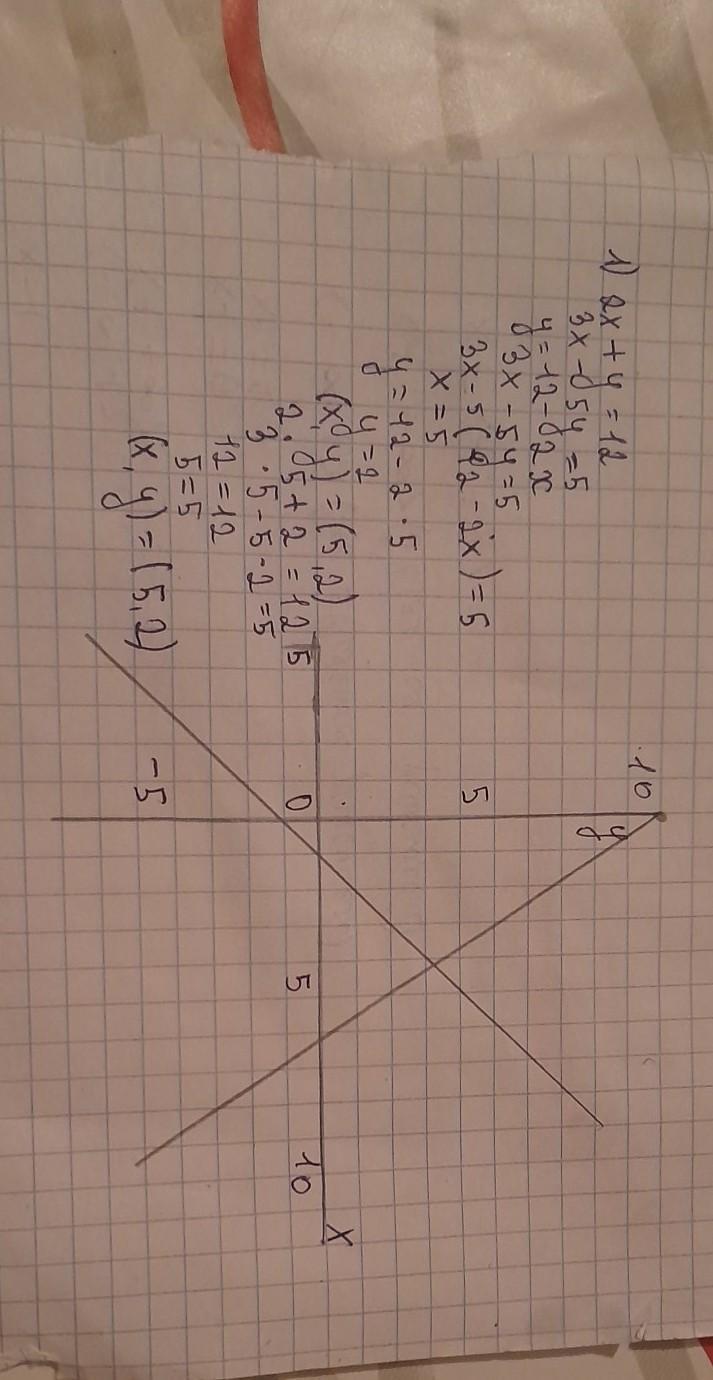 1) 2x + y = 12
3x - 5y = 5
y = 12 - 2x
3x - 5y = 5
3x - 5(12 - 2x) = 5
x = 5
y = 12 - 2 · 5
y = 2
(x, y) = (5, 2)
2 · 5 + 2 = 12
3 · 5 - 5 · 2 = 5
12 = 12
5 = 5
(x, y) = (5, 2)
10
y
5
5
0
5
10
x
-5